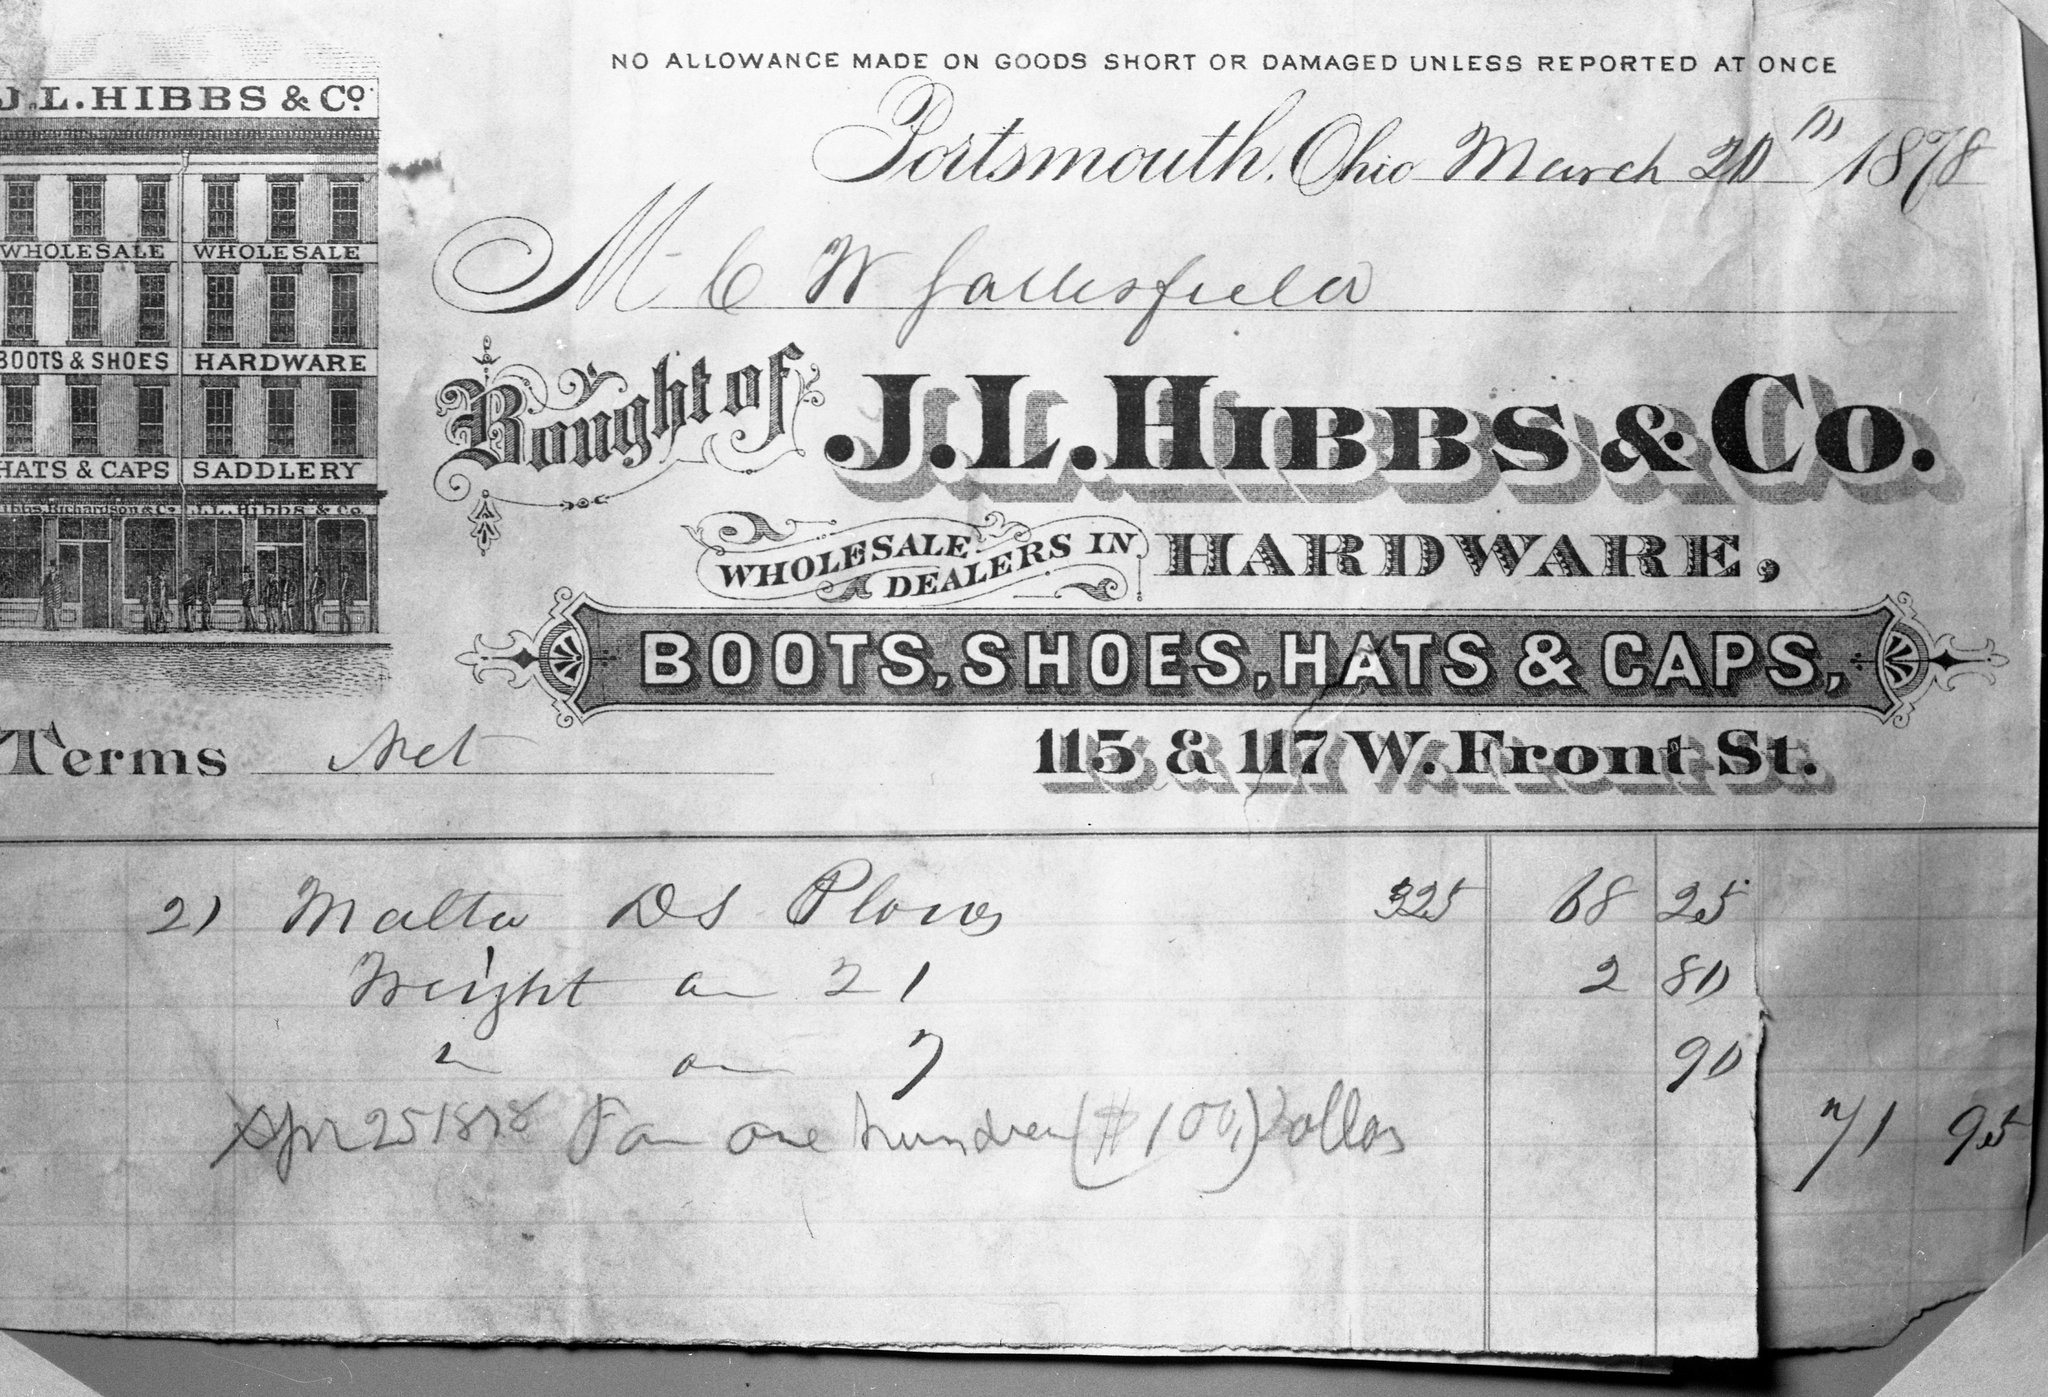 NO ALLOWANCE MADE ON GOODS SHORT OR DAMAGED UNLESS REPORTED AT ONCE
J.L. HIBBS & Co.
WHOLESALE WHOLESALE
BOOTS & SHOES HARDWARE
HATS & CAPS SADDLERY
ibbs, Richardson & Co. J.L. Hibbs & Co.
Portsmouth, Ohio March 20th 1878
M C W
Bought of J.L. HIBBS & Co.
WHOLESALE DEALERS IN HARDWARE,
BOOTS, SHOES, HATS & CAPS,
115 & 117 W. Front St.
Terms Net
21 Malta D S Plows 325 68 25
Freight on 21 2 80
" on 7 90
71 95
Apr 25 1878 one hundred ($100,) Dollars